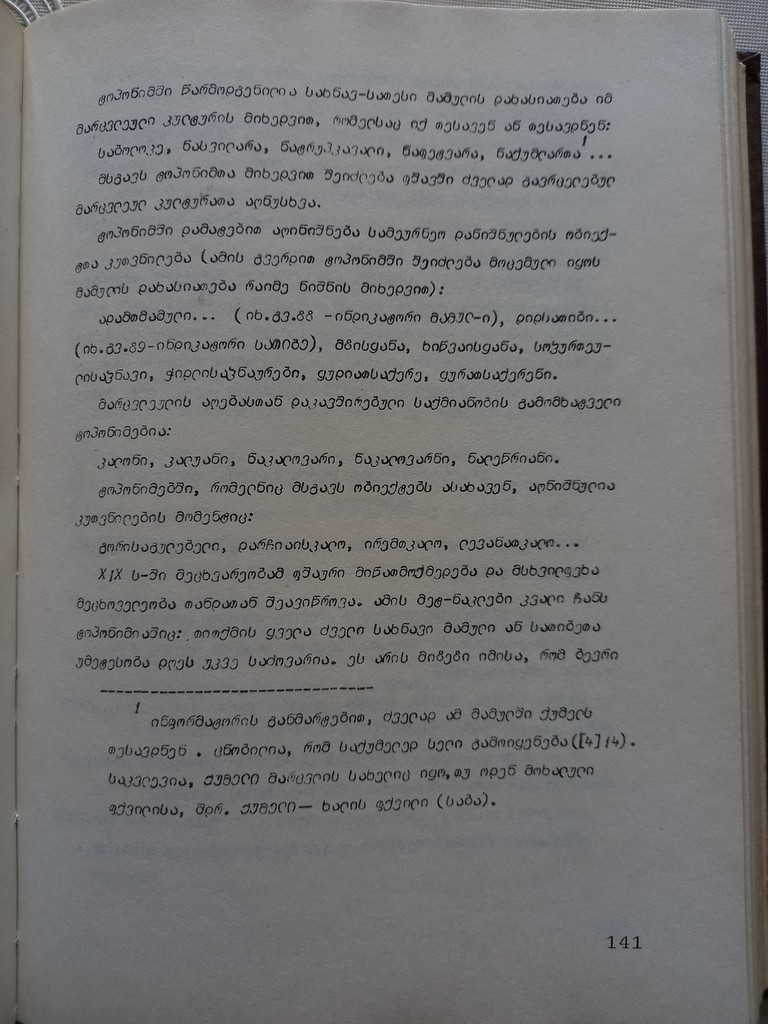 ტოპონიმში წარმოდგენილია სახნავ-სათესი მამულის დახასიათება იმ
მარცვლეული კულტურის მიხედვით, რომელსაც იქ თესავენ ან თესავდნენ:
საბოლოკე, ნასვილარა, ნატრუპკავალი, ნაფეტვარა, ნაქუმლართა¹...
მსგავს ტოპონიმთა მიხედვით შეიძლება ფშავში ძველად გავრცელებულ
მარცვლეულ კულტურათა აღნუსხვა.
ტოპონიმში დამატებით აღინიშნება სამეურნეო დანიშნულების ობიექ-
ტთა კუთვნილება (ამის გვერდით ტოპონიმში შეიძლება მოცემული იყოს
მამულის დახასიათება რაიმე ნიშნის მიხედვით):
ადამთმამული... (იხ.გვ.88 -ინდიკატორი მამულ-ი), დიდსათიბი...
(იხ.გვ.89-ინდიკატორი სათიბე), მზისყანა, ხიწვაისყანა,
ლისახნავი, ჭიდლისახნაურები, ყუდიათსაქერე, ყურათსაქერენი.
მარცვლეულის აღებასთან დაკავშირებული საქმიანობის გამომხატველი
ტოპონიმებია:
კალონი, კალუანი, ნაკალოვარი, ნაკალოვარნი, ნალეწრიანი.
ტოპონიმებში, რომელნიც მსგავს ობიექტებს ასახავენ, აღნიშნულია
კუთვნილების მომენტიც:
გორისაგულებელი, დარჩიაისკალო, ირემთკალო, ლევანათკალო...
XIX ს-ში მეცხვარეობამ ფშაური მიწათმოქმედება და მსხვილფეხა
მეცხოველეობა თანდათან შეავიწროვა. ამის მეტ-ნაკლები კვალი ჩანს
ტოპონიმიაშიც: თითქმის ყველა ძველი სახნავი მამული ან სათიბეთა
უმეტესობა დღეს უკვე საძოვარია. ეს არის მიზეზი იმისა, რომ ბევრი
¹ ინფორმატორის განმარტებით, ძველად ამ მამულში ქუმელს
თესავდნენ . ცნობილია, რომ საქუმელედ სელი გამოიყენება([4]14).
საკვლევია, ქუმელი მარცვლის სახელიც იყო,თუ ოდენ მოხალული
ფქვილისა, შდრ. ქუმელი— ხალის ფქვილი (საბა).
141